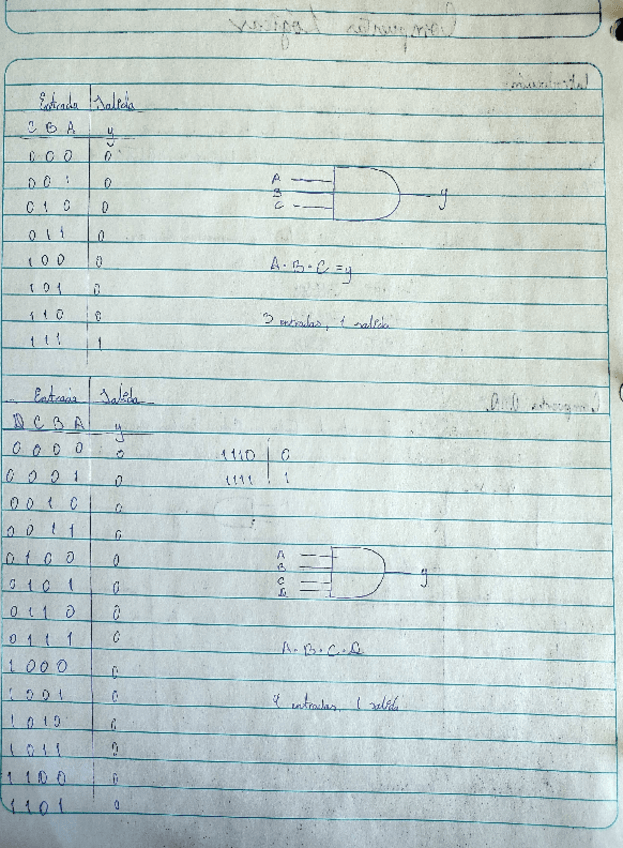 Entrada | Salida
C B A | y
0 0 0 | 0
0 0 1 | 0
0 1 0 | 0
0 1 1 | 0
1 0 0 | 0
1 0 1 | 0
1 1 0 | 0
1 1 1 | 1
A
B
C
y
A·B·C=y
3 entradas, 1 salida
Entrada | Salida
D C B A | y
0 0 0 0 | 0
0 0 0 1 | 0
0 0 1 0 | 0
0 0 1 1 | 0
0 1 0 0 | 0
0 1 0 1 | 0
0 1 1 0 | 0
0 1 1 1 | 0
1 0 0 0 | 0
1 0 0 1 | 0
1 0 1 0 | 0
1 0 1 1 | 0
1 1 0 0 | 0
1 1 0 1 | 0
1110 | 0
1111 | 1
A
B
C
D
y
A·B·C·D
4 entradas, 1 salida